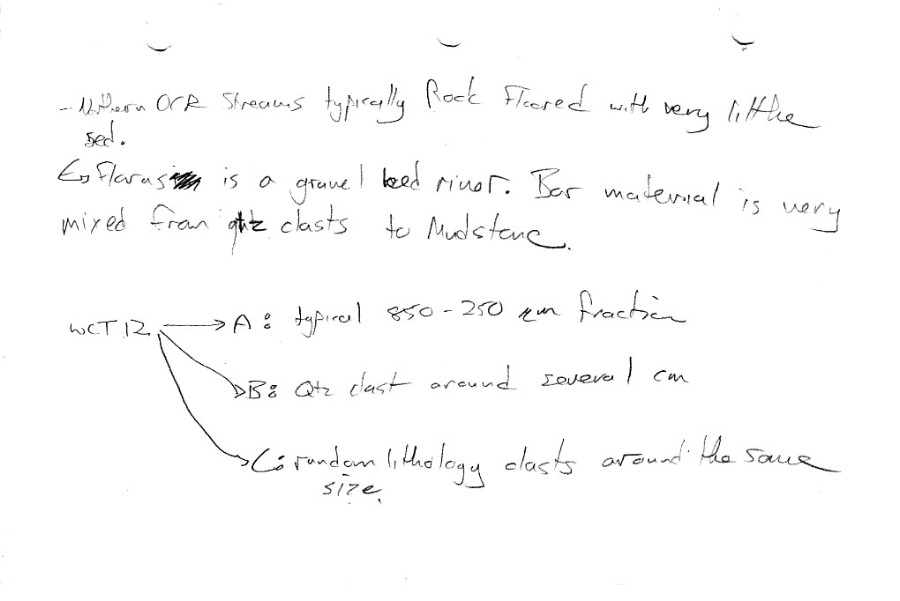 - Northern OCR Streams typically Rock Floored with very little
sed.
↳ Floras is a gravel bed river. Bar material is very
mixed from qtz clasts to Mudstone.
WCT12 → A: typical 850-250 um fraction
→ B: Qtz clast around several cm
→ C: random lithology clasts around the same
size.